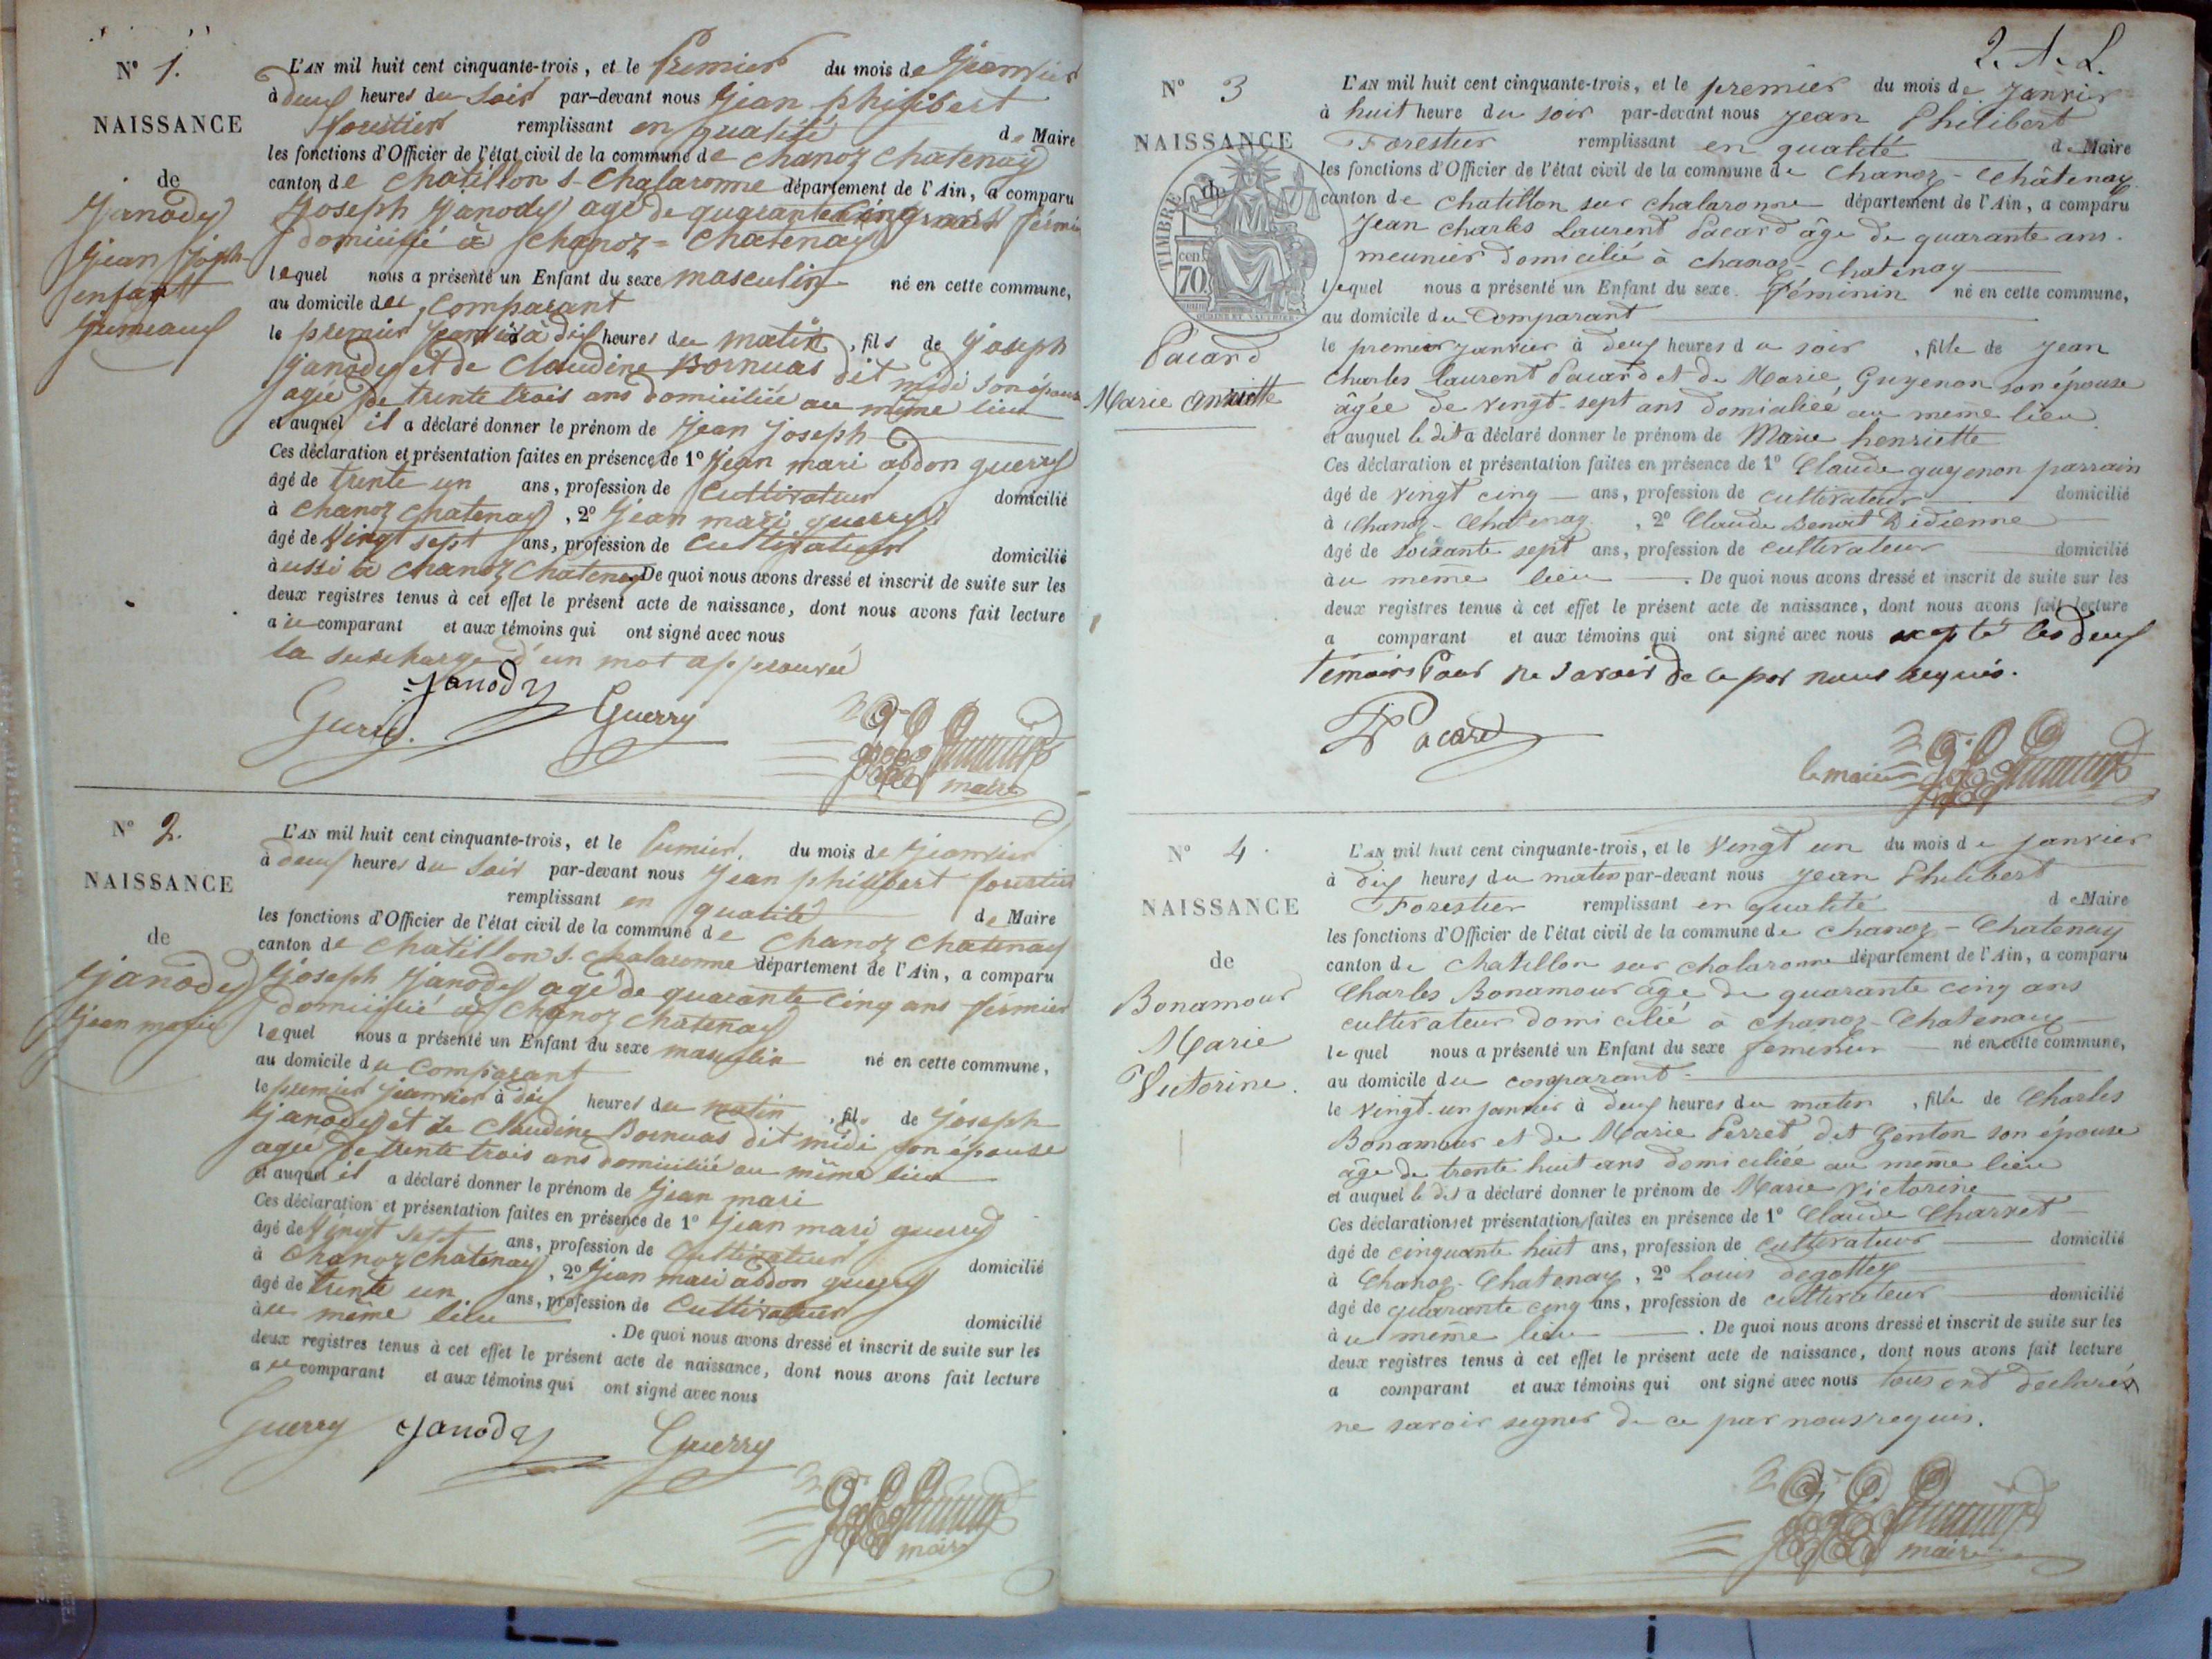 N° 1.
NAISSANCE
de
Janody
Jean Joseph
enfant
jumeaux
L'AN mil huit cent cinquante-trois, et le Premier du mois de Janvier
à deux heures du Soir par-devant nous Jean philibert
forestier remplissant en qualité de Maire
les fonctions d'Officier de l'état civil de la commune de chanoz chatenay
canton de chatillon s- chalaronne département de l'Ain, a comparu
Joseph Janody agé de quarante cinq ans fermier
domicilié à chanoz = chatenay
lequel nous a présenté un Enfant du sexe masculin né en cette commune,
au domicile du comparant
le premier janvier à dix heures du matin, fils de joseph
janody et de Claudine Bornuas dit midi son épouse
agée de trente trois ans domiciliée au même lieu
et auquel il a déclaré donner le prénom de Jean joseph
Ces déclaration et présentation faites en présence de 1° Jean mari abdon guerry
âgé de trente un ans, profession de Cultivateur domicilié
à chanoz chatenay, 2° Jean mari guerry
âgé de Vingt sept ans, profession de Cultivateur domicilié
aussi à chanoz chatenay De quoi nous avons dressé et inscrit de suite sur les
deux registres tenus à cet effet le présent acte de naissance, dont nous avons fait lecture
au comparant et aux témoins qui ont signé avec nous
la surcharge d'un mot approuvée
Janody
Guerry Guerry
maire
N° 2.
NAISSANCE
de
Janody
Jean marie
L'AN mil huit cent cinquante-trois, et le Premier. du mois de Janvier
à deux heures du Soir par-devant nous Jean philibert forestier
remplissant en qualité de Maire
les fonctions d'Officier de l'état civil de la commune de chanoz chatenay
canton de chatillon s. chalaronne département de l'Ain, a comparu
Joseph Janody agé de quarante cinq ans fermier
domicilié à chanoz chatenay
lequel nous a présenté un Enfant du sexe masculin né en cette commune,
au domicile du comparant
le premier janvier à dix heures du matin, fils de joseph
janody et de Claudine Bornuas dit midi son épouse
agée de trente trois ans domiciliée au même lieu
et auquel il a déclaré donner le prénom de Jean mari
Ces déclaration et présentation faites en présence de 1° Jean mari guerry
âgé de Vingt sept ans, profession de Cultivateur domicilié
à Chanoz chatenay, 2° Jean mari abdon guerry
âgé de trente un ans, profession de Cultivateur domicilié
au même lieu . De quoi nous avons dressé et inscrit de suite sur les
deux registres tenus à cet effet le présent acte de naissance, dont nous avons fait lecture
au comparant et aux témoins qui ont signé avec nous
Guerry Janody Guerry
maire
2. A. L.
N° 3
NAISSANCE
de
TIMBRE
70
Pacard
Marie
L'AN mil huit cent cinquante-trois, et le premier du mois de Janvier
à huit heure du soir par-devant nous Jean Philibert
Forestier remplissant en qualité de Maire
les fonctions d'Officier de l'état civil de la commune de Chanoz - Châtenay
canton de Chatillon sur chalaronne département de l'Ain, a comparu
Jean charles Laurent Pacard âge de quarante ans.
meunier domicilié à chanoz - Chatenay
lequel nous a présenté un Enfant du sexe. Féminin né en cette commune,
au domicile du Comparant
le premier janvier à deux heures du soir, fille de Jean
charles laurent Pacard et de Marie Guyenon son épouse
âgée de vingt-sept ans domiciliée au même lieu
et auquel le dit a déclaré donner le prénom de Marie henriette
Ces déclaration et présentation faites en présence de 1° Claude guyenon parrain
âgé de vingt cinq ans, profession de cultivateur domicilié
à Chanoz - Chatenay, 2° Claude Benoit Didienne
âgé de soixante sept ans, profession de cultivateur domicilié
au même lieu . De quoi nous avons dressé et inscrit de suite sur les
deux registres tenus à cet effet le présent acte de naissance, dont nous avons fait lecture
a comparant et aux témoins qui ont signé avec nous excepté les deux
témoins Pour ne savoir de ce par nous requis.
Pacard
le maire
N° 4.
NAISSANCE
de
Bonamour
Marie
Victorine.
L'AN mil huit cent cinquante-trois, et le Vingt un du mois de janvier
à dix heures du matin par-devant nous Jean Philibert
Forestier remplissant en qualité de Maire
les fonctions d'Officier de l'état civil de la commune de Chanoz - Chatenay
canton de Chatillon sur chalaronne département de l'Ain, a comparu
Charles Bonamour âge de quarante cinq ans
cultivateur domicilié à chanoz - Chatenay
lequel nous a présenté un Enfant du sexe féminin né en cette commune,
au domicile du comparant
le vingt-un janvier à deux heures du matin, fille de Charles
Bonamour et de Marie Perret dit Genton son épouse
âge de trente huit ans domiciliée au même lieu
et auquel le dit a déclaré donner le prénom de Marie Victorine
Ces déclarations et présentation faites en présence de 1° Claude Charvet
âgé de cinquante huit ans, profession de Cultivateur domicilié
à Chanoz - Chatenay, 2° Louis degottey
âgé de quarante cinq ans, profession de cultivateur domicilié
au même lieu . De quoi nous avons dressé et inscrit de suite sur les
deux registres tenus à cet effet le présent acte de naissance, dont nous avons fait lecture
a comparant et aux témoins qui ont signé avec nous tous ont déclarés
ne savoir signer de ce par nous requis.
maire